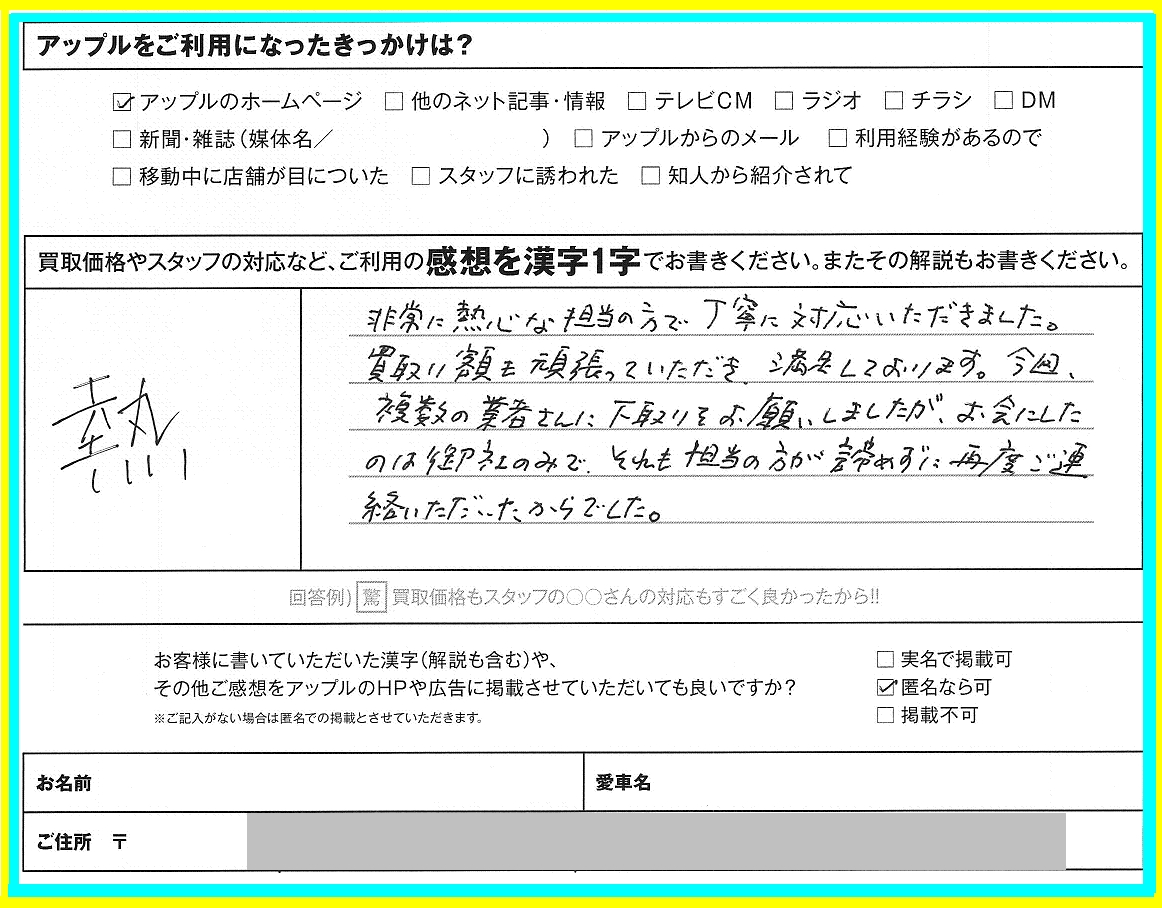 アップルをご利用になったきっかけは?
☑アップルのホームページ □他のネット記事・情報 □テレビCM □ラジオ □チラシ □DM
□新聞・雑誌(媒体名/ ) □アップルからのメール □利用経験があるので
□移動中に店舗が目についた □スタッフに誘われた □知人から紹介されて
買取価格やスタッフの対応など、ご利用の感想を漢字1字でお書きください。またその解説もお書きください。
熱
非常に熱心な担当の方で丁寧に対応いただきました。
買取り額も頑張っていただき、満足しております。今回、
複数の業者さんに下取りをお願いしましたが、お会にした
のは御社のみで、それも担当の方が諦めずに再度ご連
絡いただいたからでした。
回答例) 驚 買取価格もスタッフの○○さんの対応もすごく良かったから!!
お客様に書いていただいた漢字(解説も含む)や、
その他ご感想をアップルのHPや広告に掲載させていただいても良いですか?
※ご記入がない場合は匿名での掲載とさせていただきます。
□実名で掲載可
☑匿名なら可
□掲載不可
お名前 愛車名
ご住所 〒